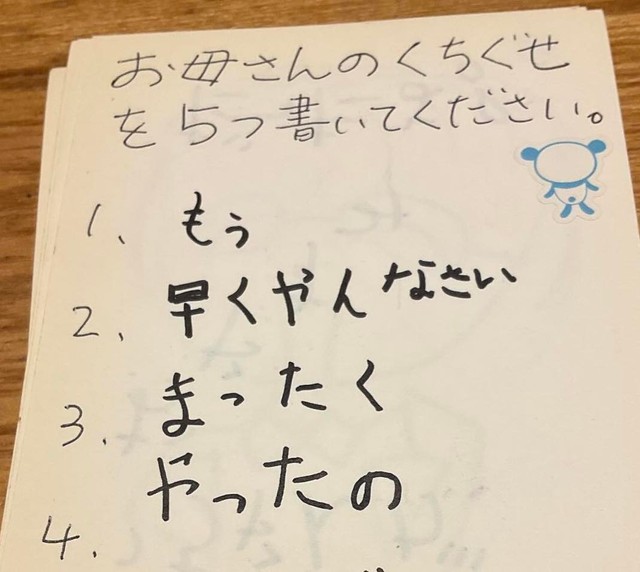 お母さんのくちぐせ
を5つ書いてください。
1、もう
2、早くやんなさい
3、まったく
4、やったの